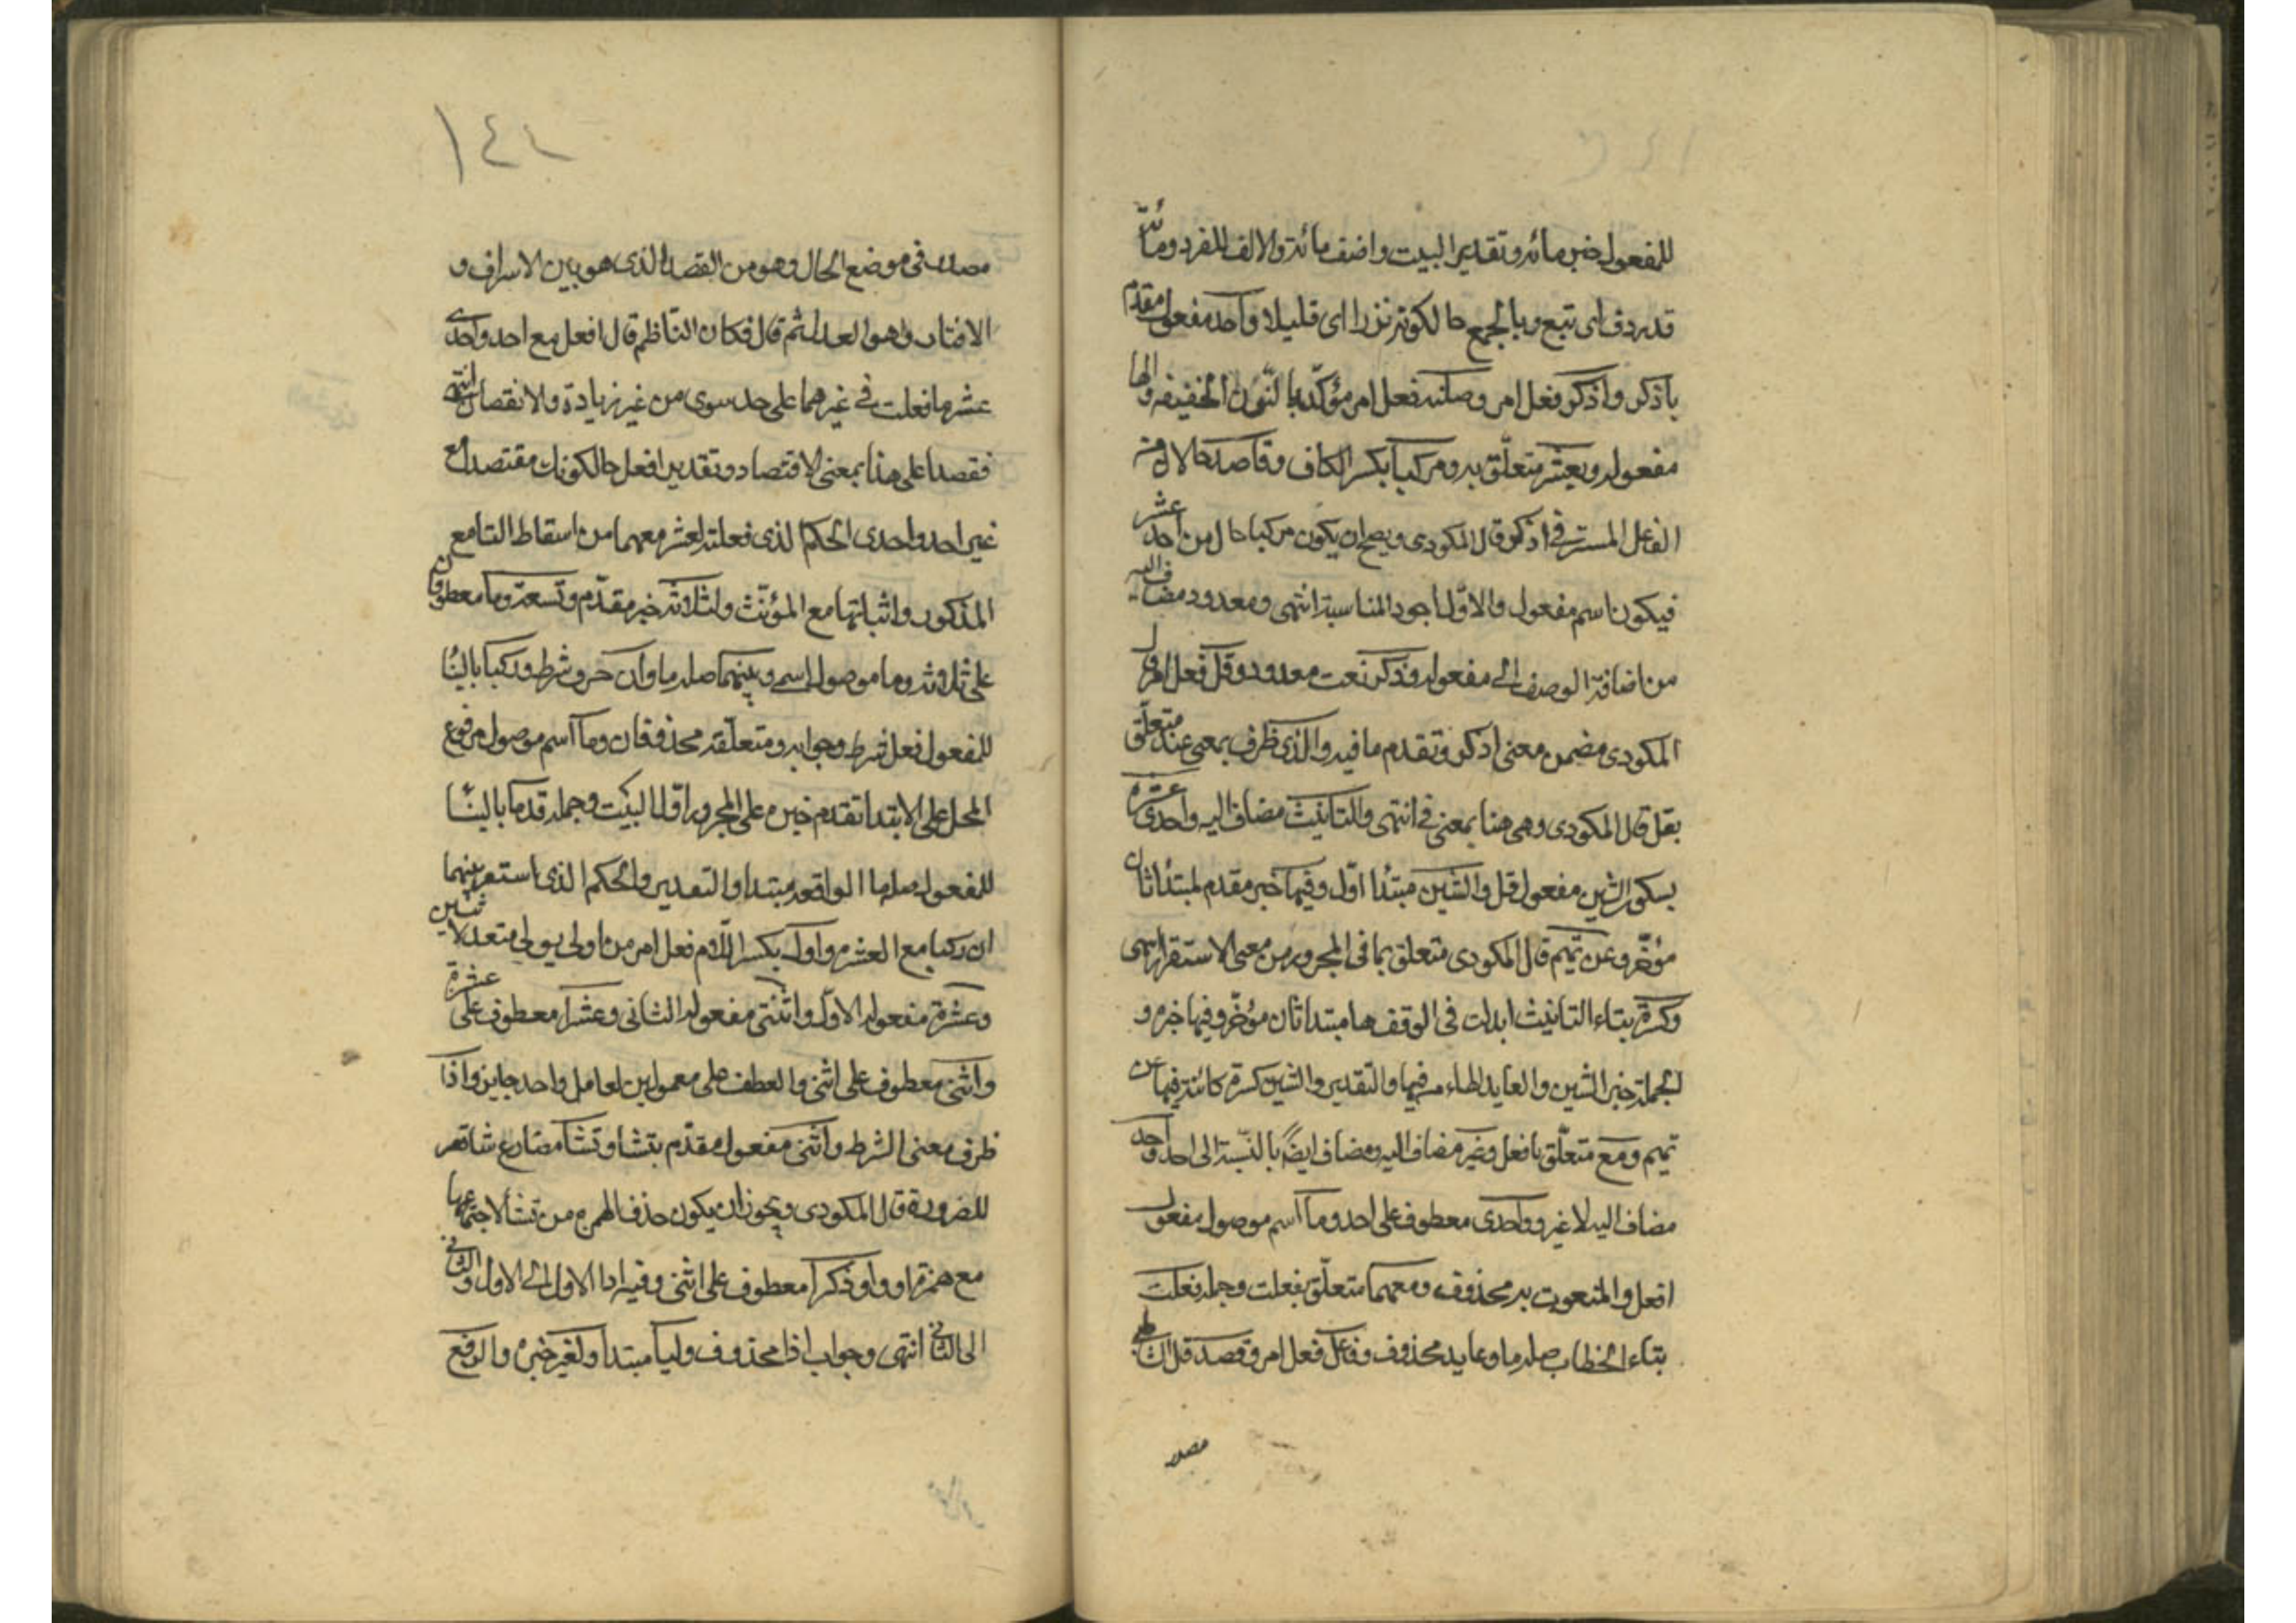 للمفعول خبر مائة وتقدير البيت واضف مائة والالف للفرد ومائة
قد ردف اى تبع وبالجمع حالكونه نزرا اى قليلا واحد مفعول مقدم
باذكر واذكر فعل امر وصلنه فعل امر مؤكد بالنون الخفيفه والها
مفعوله وبعشر متعلق به ومركبا بكسر الكاف وقاصد حالان من
الفاعل المستتر فى اذكر قال المكودى ويصح ان يكون مركبا حال من احد عشر
فيكون اسم مفعول والاول اجود لمناسبة انتهى ومعدود مضاف اليه
من اضافة الوصف الى مفعوله وذكر نعت معدود وقل فعل امر قال
المكودى مضمن معنى اذكر وتقدم ما فيه والذى ظرف بمعنى عند متعلق
بقل قال المكودى وهى هنا بمعنى فى انتهى والتانيث مضاف اليه واحدى عشرة
بسكون الشين مفعول قل والشين مبتدا اول وفيها خبر مقدم لمبتدا ثان
مؤخر وعن تميم قال المكودى متعلق بما فى المجرور من معنى الاستقرار انتهى
وكسرة بتاء التانيث ابدلت فى الوقف ها مبتدا ثان مؤخر وفيها خبره و
الجملة خبر الشين والعايد الهاء من فيها والتقدير والشين كسرة كائنة فيها عن
تميم ومع متعلق بافعل وغير مضاف اليه ومضاف ايضا بالنسبة الى احد واحد
مضاف اليه لا غير وواحدى معطوف على احد وما اسم موصول مفعول
افعل والمنعوت به محذوف ومعهما متعلق بفعلت وجملة فعلت
بتاء الخطاب صلة ما وعايد محذوف وفافعل فعل امر وقصدا قال الشاطبى
مصدر
١٤٤
مصدر فى موضع الحال وهو من القصد الذى هو بين الاسراف و
الاقتار وهو العدل ثم قال فكان الناظم قال افعل مع احد واحدى
عشر ما فعلت فى غيرهما على حد سوى من غير زيادة ولا نقصان انتهى
فقصدا على هذا بمعنى الاقتصاد وتقدير افعل حالكونك مقتصدا مع
غير احد واحدى الحكم الذى فعلته لعشر معهما من اسقاط التا مع
المذكور واثباتها مع المؤنث ولثلاثة خبر مقدم وتسعة وما معطوفان
على ثلاثة وما موصول اسمى وبينهما صلة ما وان حرف شرط وركبا بالبنا
للمفعول فعل شرط وجوابه ومتعلقه محذوفان وما اسم موصول مرفوع
المحل على الابتدا تقدم خبره على المجرور اول البيت وجملة قدما بالبنا
للمفعول صلة ما الواقعه مبتدا والتقدير والحكم الذى استقر بينهما
ان ركبا مع العشرة واول بكسر اللام فعل امر من اولى يولى متعد لاثنين
وعشرة مفعوله الاول واثنتى مفعوله الثانى وعشرا معطوف على عشرة
واثنى معطوف على اثنتى والعطف على معمولين لعامل واحد جايز واذا
ظرف معنى الشرط واثنى مفعول مقدم بتشا وتشا مضارع شا قصر
للضرورة قال المكودى ويجوز ان يكون حذف الهمزة من تشا لاجتماعها
مع همزة او واو ذكرا معطوف على اثنى وفيه اذا الاول الى الاول والثانى
الى الثانى انتهى وجواب اذا محذوف وليا مبتدا ولغير خبره والرفع